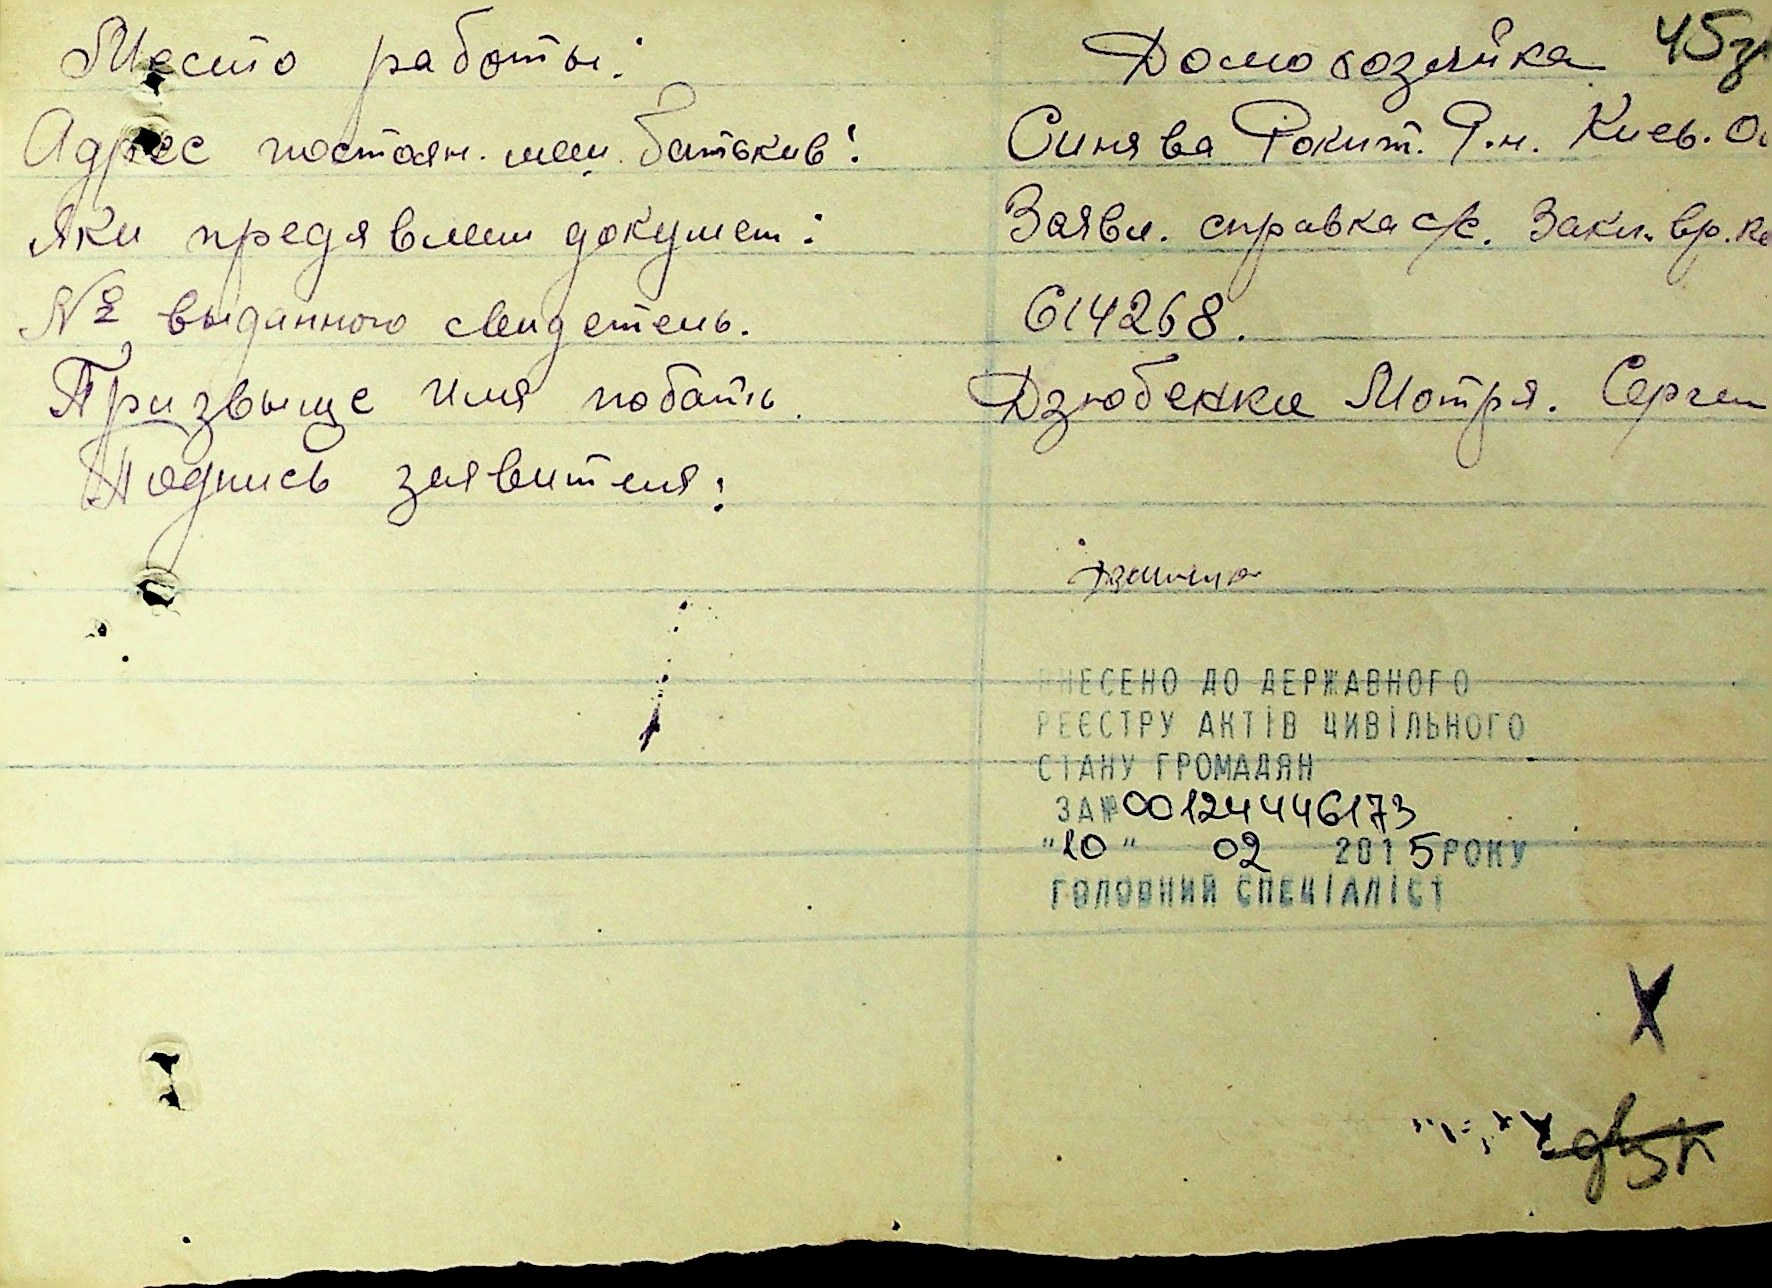 Место работы: Домохозяйка 45
Адрес постоян. меш. батькив: Синява Рокит. Р.н. Киев. О
Яки предявлени докумен: Заявл. справка с/с. Закл. вр. ко
№ выданного свидетель. 614268.
Призвыще имя побать. Дзюбенко Мотря. Сергеи
Подпись заявителя:
ВНЕСЕНО ДО ДЕРЖАВНОГО
РЕЄСТРУ АКТІВ ЦИВІЛЬНОГО
СТАНУ ГРОМАДЯН
ЗА № 00124446173
"10" 02 2015 РОКУ
ГОЛОВНИЙ СПЕЦІАЛІСТ